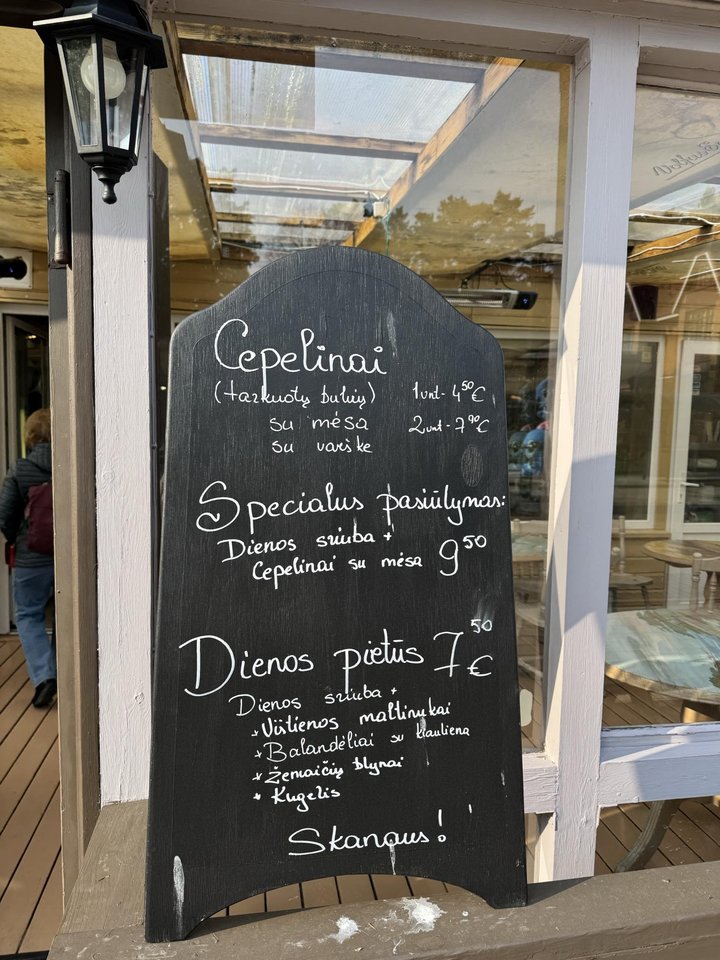 Cepelinai
(tarkuotų bulvių) 1 vnt - 4 50 €
su mėsa 2 vnt - 7 90 €
su varške
Specialus pasiūlymas:
Dienos sriuba +
Cepelinai su mėsa 9 50
Dienos pietūs 7 50 €
Dienos sriuba +
* Vištienos maltinukai
* Balandėliai su kiauliena
* Žemaičių blynai
* Kugelis
Skanaus!